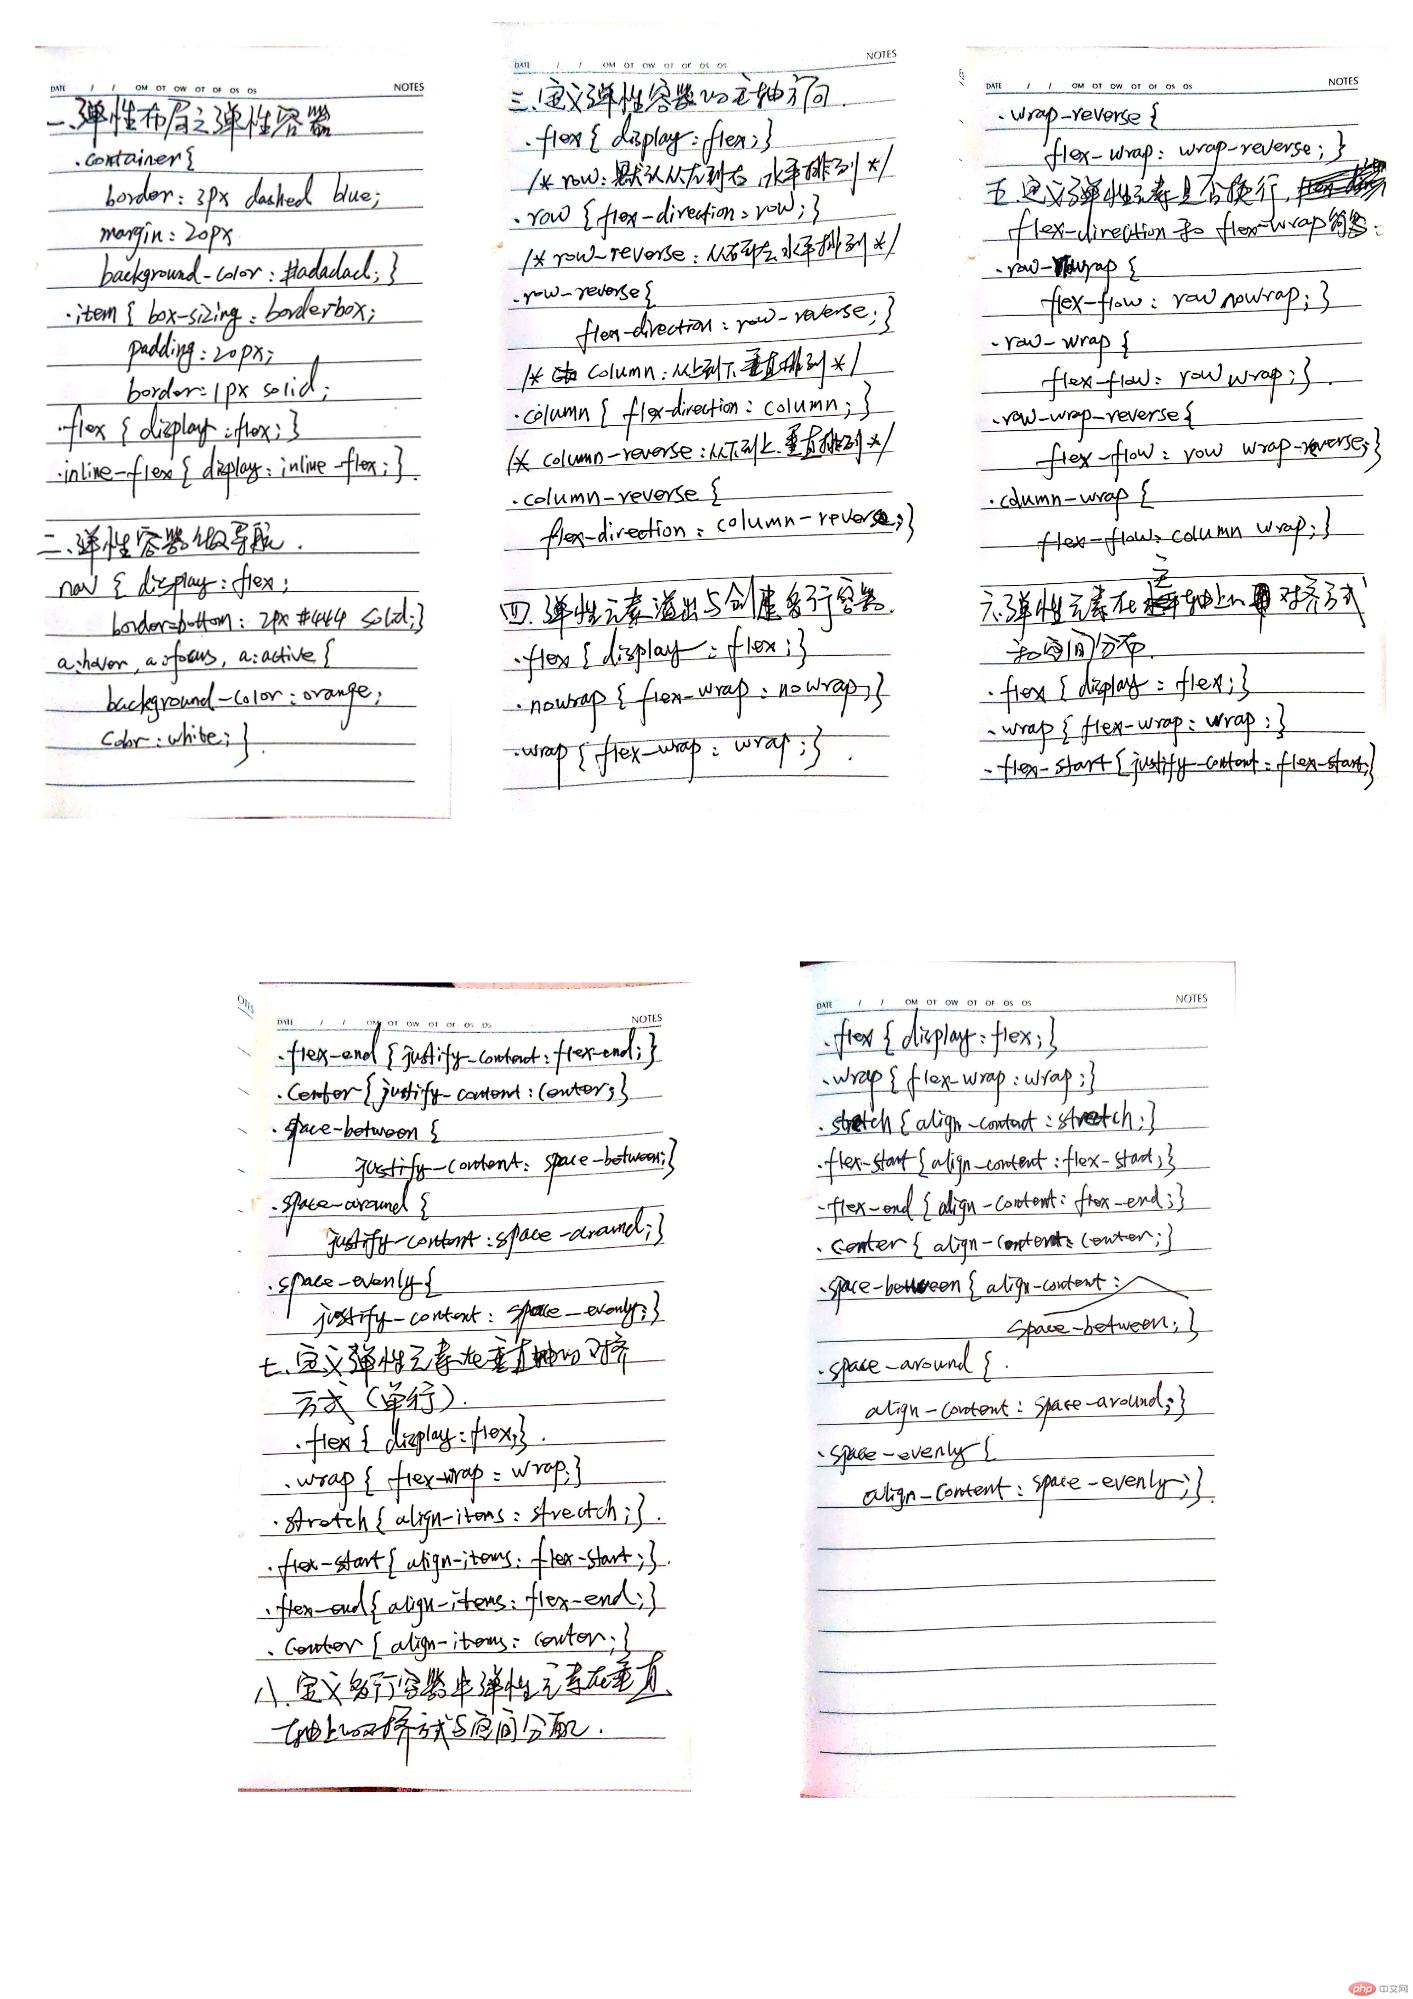 DATE / / OM OT OW OT OF OS OS NOTES
一、弹性布局之弹性容器
.container{
border: 3px dashed blue;
margin: 20px
background-color: #adadad; }
.item{ box-sizing: borderbox;
padding: 20px;
border: 1px solid;
.flex { display: flex; }
.inline-flex { display: inline-flex; }
二、弹性容器做导航.
nav { display: flex;
border-bottom: 2px #444 solid;}
a:hover, a:focus, a:active {
background-color: orange;
color: white; }
DATE / / OM OT OW OT OF OS OS NOTES
三、定义弹性容器的主轴方向.
.flex { display: flex; }
/* row: 默认从左到右,水平排列 */
.row { flex-direction: row; }
/* row-reverse: 从右到左水平排列 */
.row-reverse {
flex-direction: row-reverse; }
/* column: 从上到下、垂直排列 */
.column { flex-direction: column; }
/* column-reverse: 从下到上、垂直排列 */
.column-reverse {
flex-direction: column-reverse; }
四、弹性元素溢出与创建多行容器.
.flex { display: flex; }
.nowrap { flex-wrap: nowrap; }
.wrap { flex-wrap: wrap; }
DATE / / OM OT OW OT OF OS OS NOTES
.wrap-reverse {
flex-wrap: wrap-reverse; }
五、定义弹性元素是否换行,
flex-direction 和 flex-wrap
.row-nowrap {
flex-flow: row nowrap; }
.row-wrap {
flex-flow: row wrap; }
.row-wrap-reverse {
flex-flow: row wrap-reverse; }
.column-wrap {
flex-flow: column wrap; }
六、弹性元素在主轴上的对齐方式
和空间分布.
.flex { display: flex; }
.wrap { flex-wrap: wrap; }
.flex-start { justify-content: flex-start; }
DATE / / OM OT OW OT OF OS OS NOTES
.flex-end { justify-content: flex-end; }
.center { justify-content: center; }
.space-between {
justify-content: space-between; }
.space-around {
justify-content: space-around; }
.space-evenly {
justify-content: space-evenly; }
七、定义弹性元素在垂直轴的对齐
方式(单行).
.flex { display: flex; }.
.wrap { flex-wrap: wrap; }
.stretch { align-items: strectch; }.
.flex-start { align-items: flex-start; }.
.flex-end { align-items: flex-end; }
.center { align-items: center; }
八、定义多行容器中弹性元素在垂直
轴上的对齐方式与空间分配.
DATE / / OM OT OW OT OF OS OS NOTES
.flex { display: flex; }
.wrap { flex-wrap: wrap; }
.stretch { align-content: stretch; }
.flex-start { align-content: flex-start; }
.flex-end { align-content: flex-end; }
.center { align-content: center; }
.space-between { align-content:
space-between; }
.space-around {
align-content: space-around; }
.space-evenly {
align-content: space-evenly; }
php 中文网